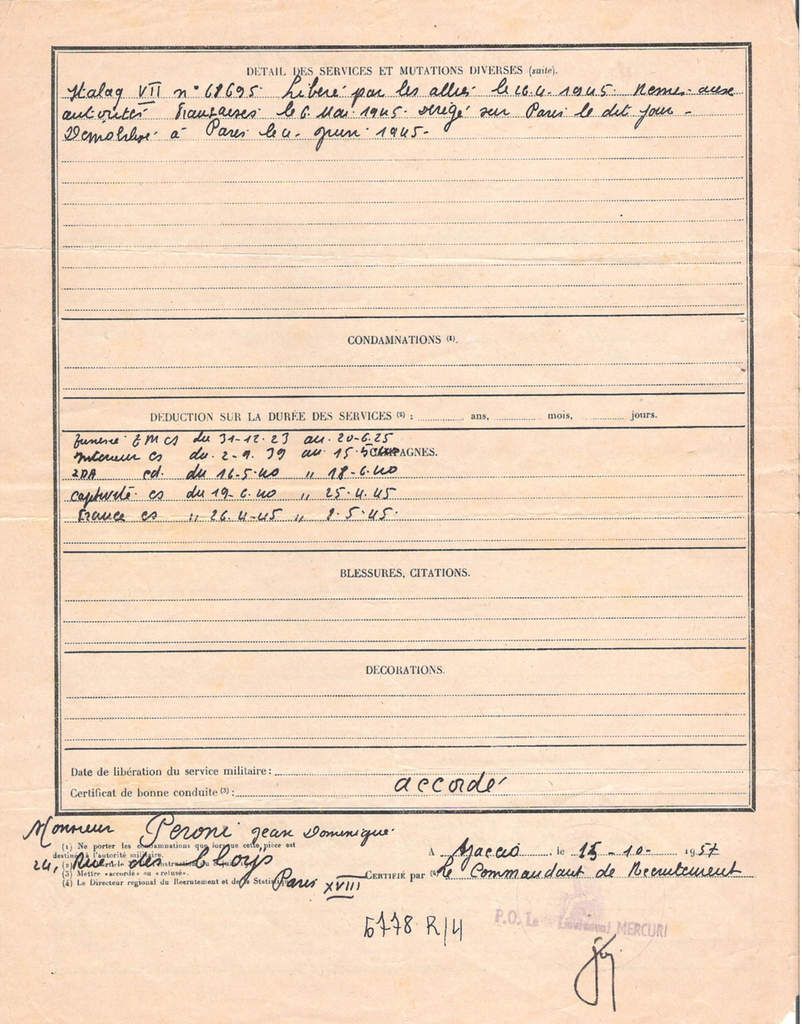 DETAIL DES SERVICES ET MUTATIONS DIVERSES (suite).
Stalag VII n° 68695 Libéré par les alliés le 26.4.1945 Remis aux
autorités françaises le 6 Mai 1945 dirigé sur Paris le dit jour -
Démobilisé à Paris le 4 juin 1945-
CONDAMNATIONS (1).
DEDUCTION SUR LA DURÉE DES SERVICES (2) : ans, mois, jours.
CS du 31-12-23 au 20-6-25
Intérieur CS du 2-9.39 au 15.5.40
CAMPAGNES.
ZDA cd. du 16-5-40 " 18-6-40
captivité cs du 19-6-40 " 25-4-45
France cs " 26-4-45 " 8-5-45.
BLESSURES, CITATIONS.
DECORATIONS.
Date de libération du service militaire :
Certificat de bonne conduite (3) : accordé
Monsieur Peroni Jean Dominique
(1) Ne porter les condamnations que lorsque cette pièce est
destinée à l'autorité militaire.
24, Rue des Cloÿs
(3) Mettre «accordé» ou «refusé».
(4) Le Directeur regional du Recrutement et de la Statistique
Paris XVIII
A Ajaccio, le 15-10- 1957
CERTIFIÉ par (4) Le Commandant de Recrutement
5778 R/4
P.O. Le MERCURI